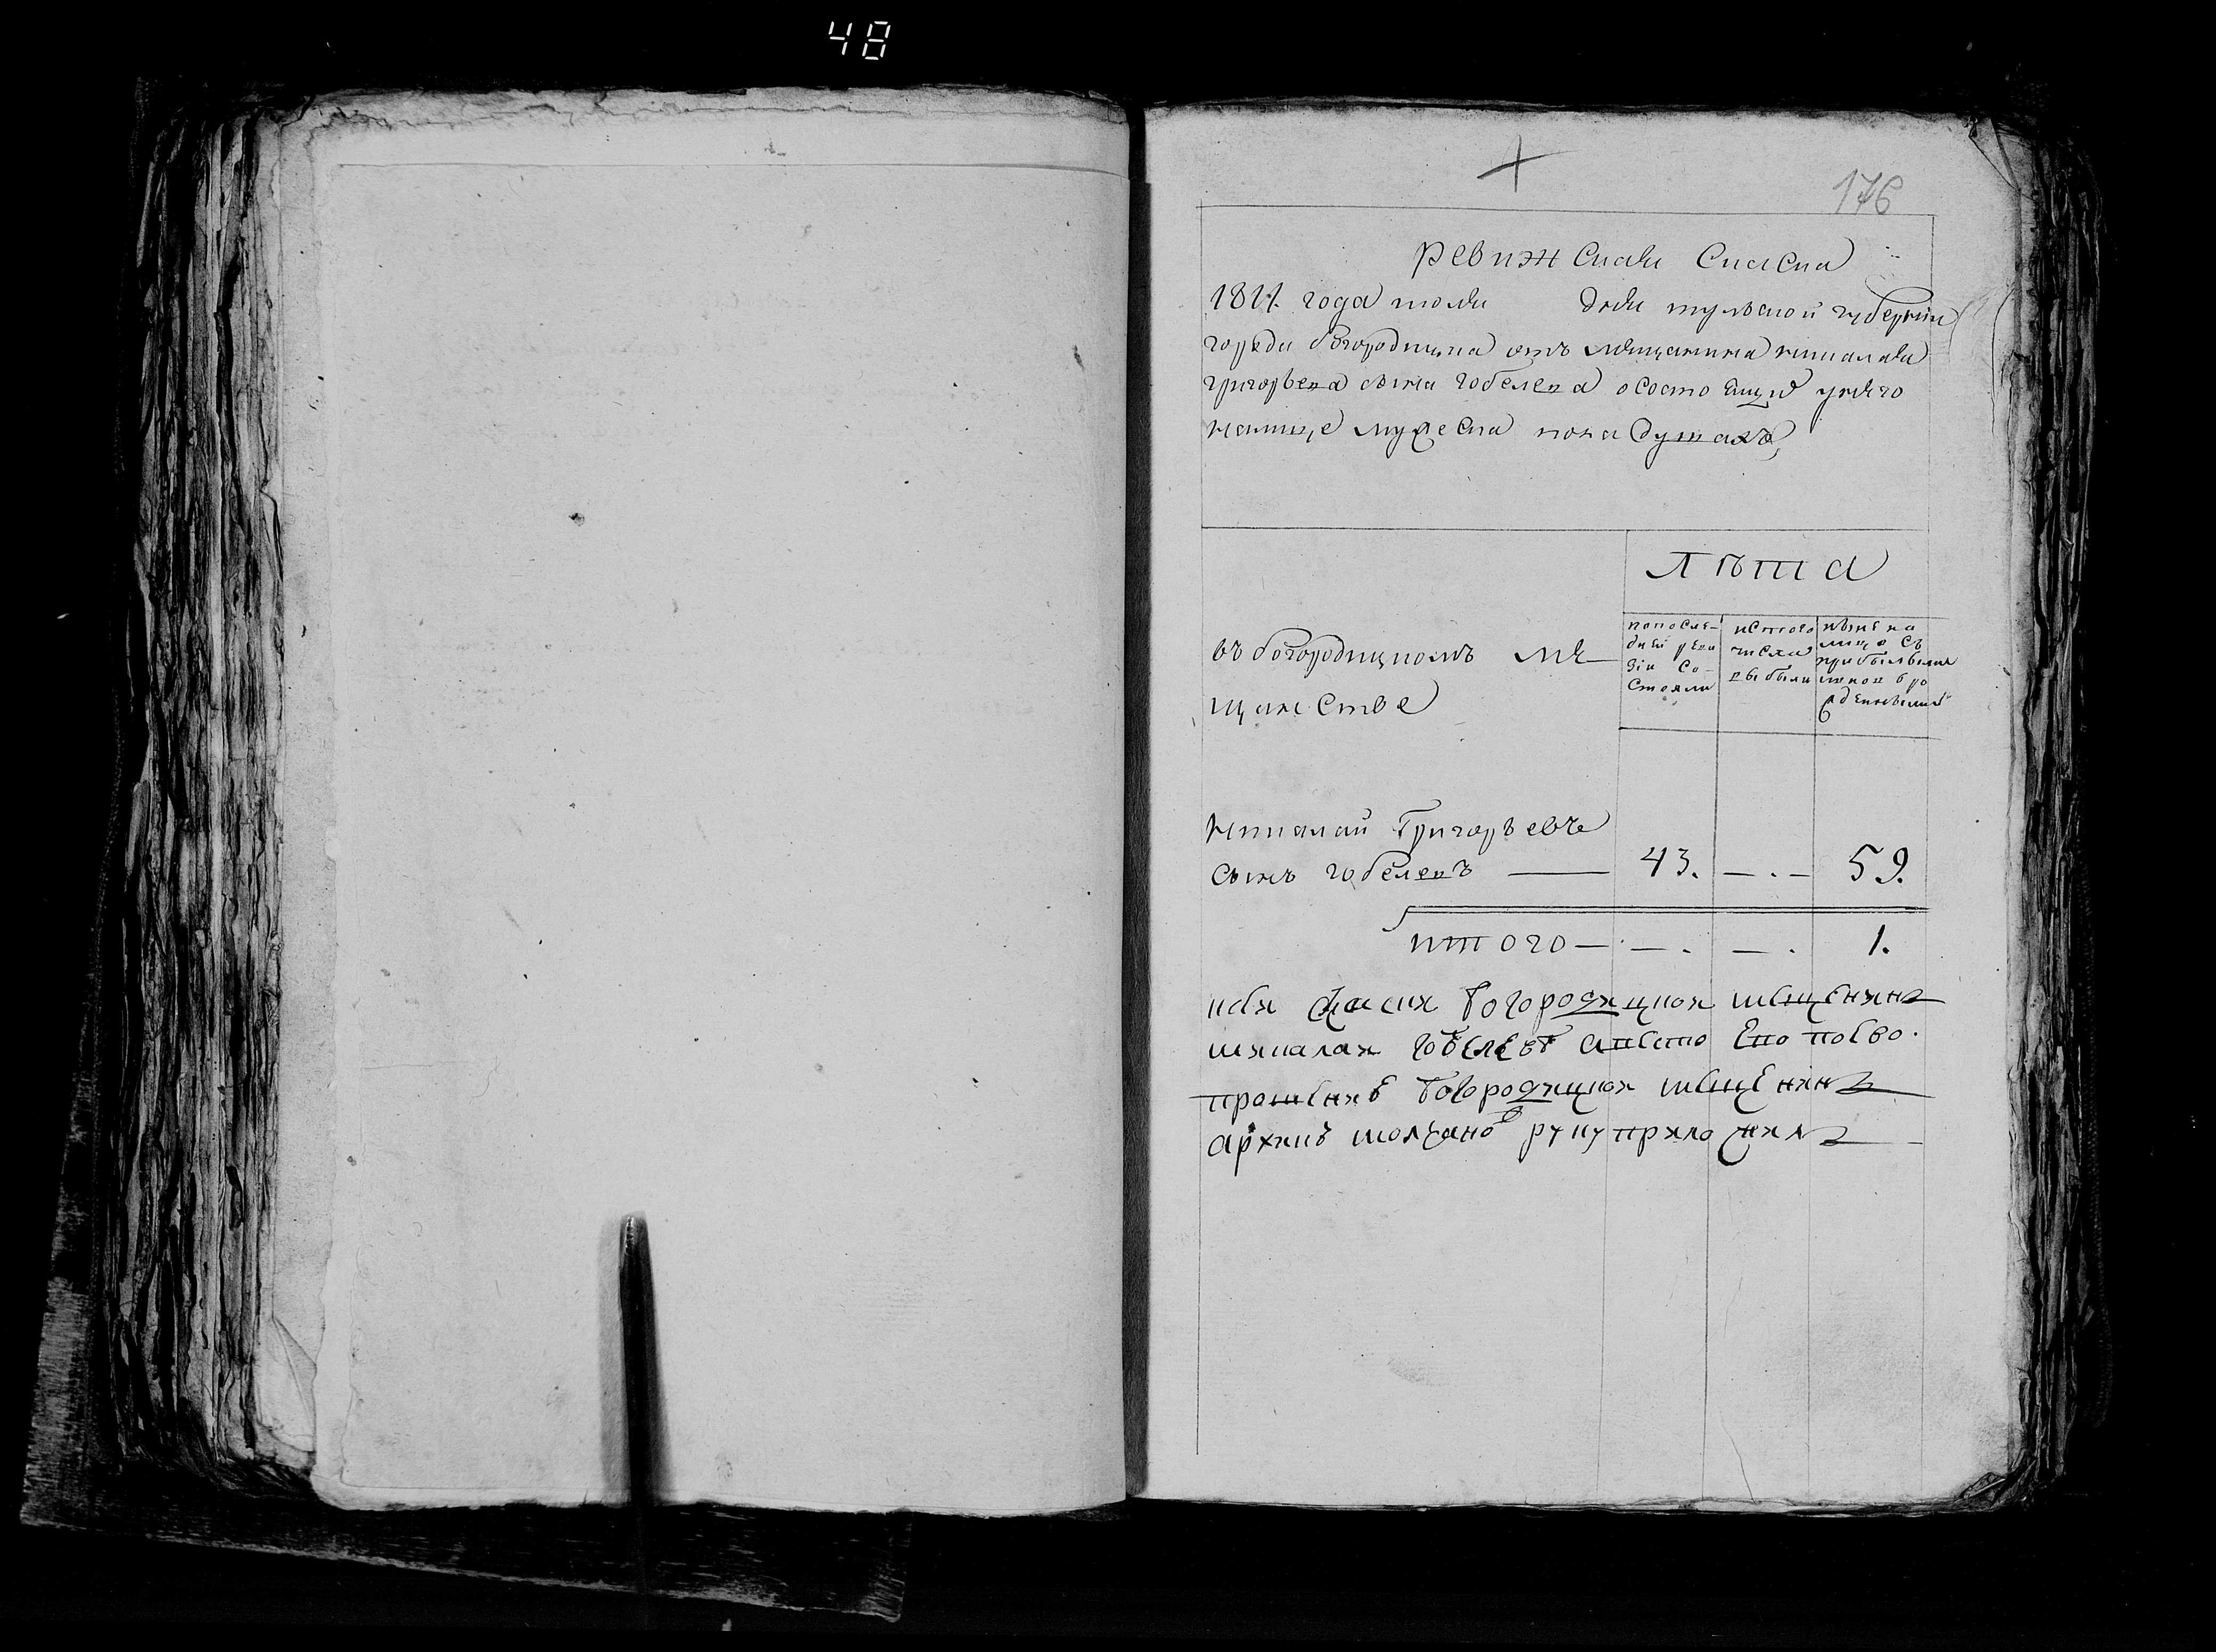 48
176
Ревизския Сказка
1811. года июля дня тулской губернии
города богородицка отъ мещанина николая
григорьева сына гобелева о состоящих у него
налице мужеска пола душахъ,
Лѣта
въ богородицкомъ ме-
щанстве
попосле-
дней реви
зіи со-
стояли
ис того
числа
выбыли
ныне на
лицо съ
прибылыми
и новоро
жденными
николай Григорьевъ
сынъ гобелевъ — 43. —.— 59.
итого — —. —. 1.
богородицкой мещенинъ
николай гобелевъ а вместо ево по ево
прошению богородицкой мещенинъ
архипъ молчановъ руку приложилъ